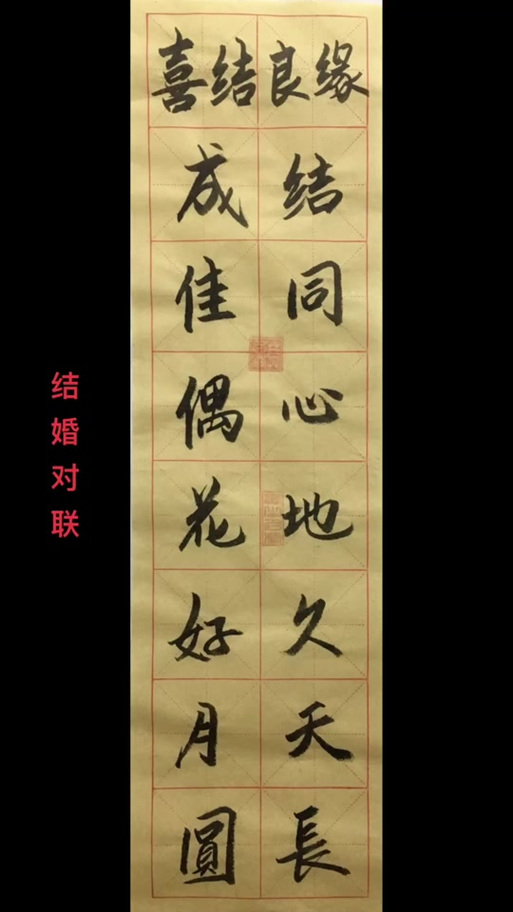 喜结良缘
结同心地久天長
成佳偶花好月圓
结婚对联